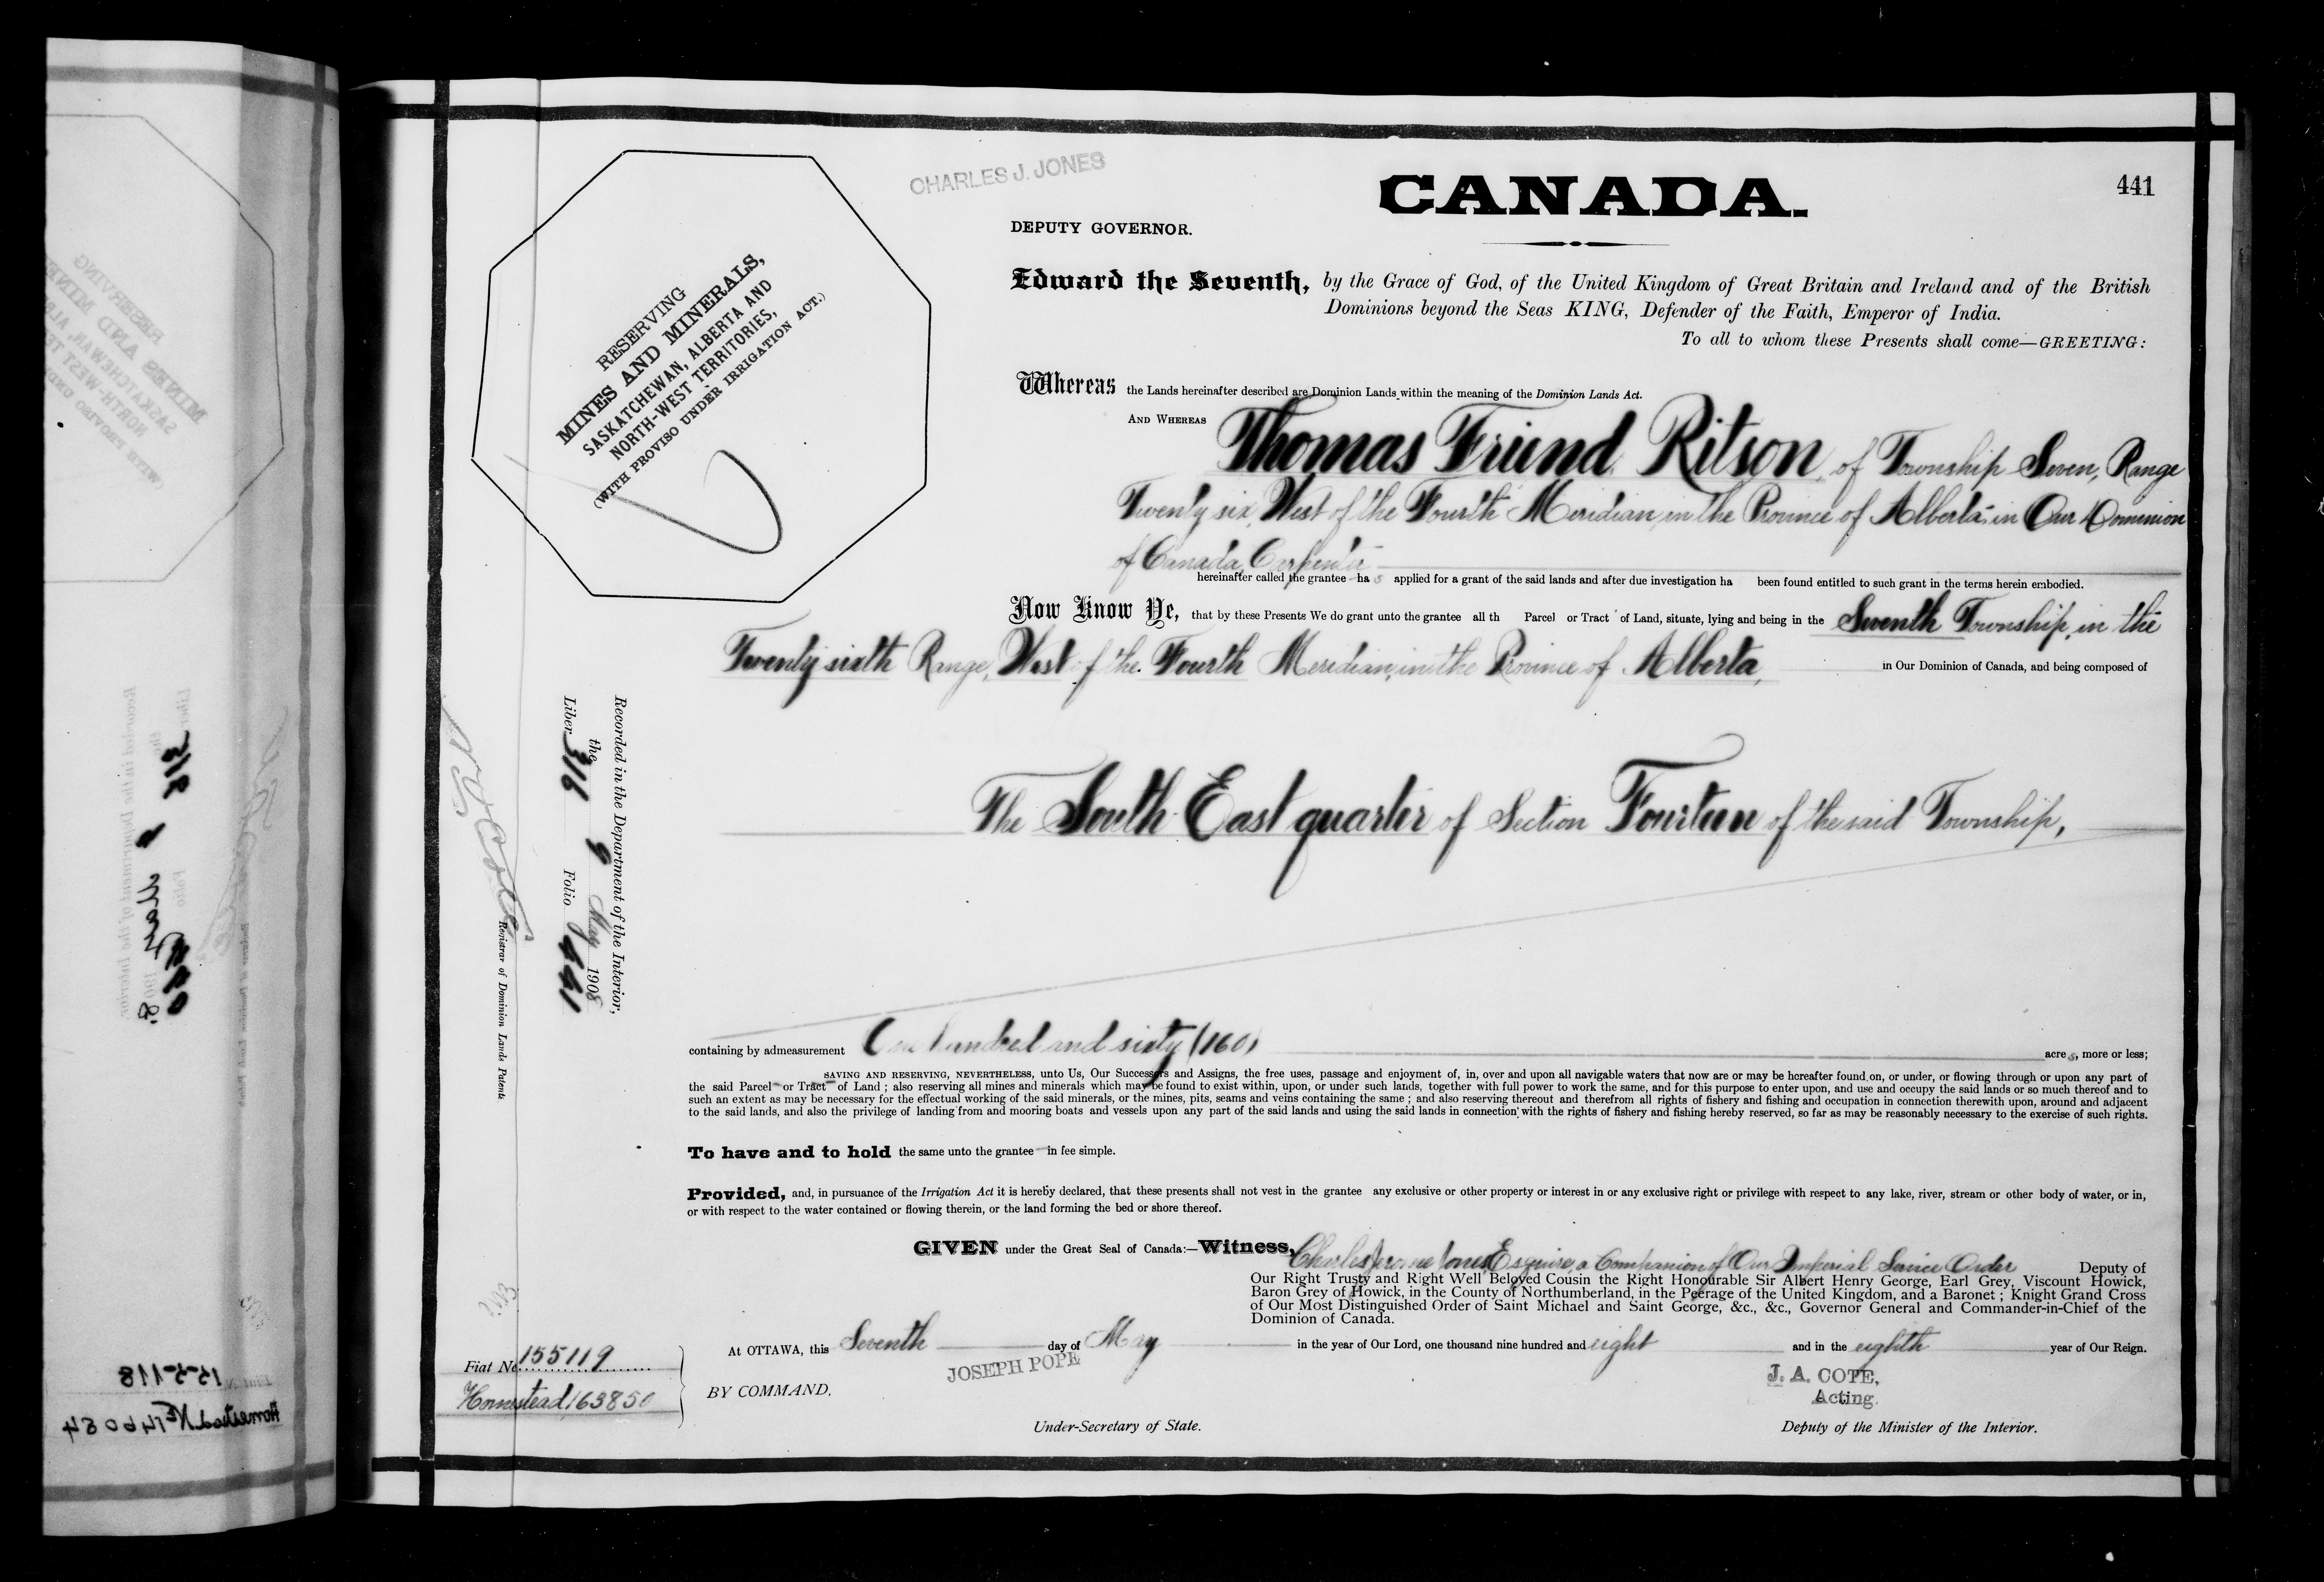 CHARLES J. JONES
CANADA.
441
DEPUTY GOVERNOR.
RESERVING
MINES AND MINERALS,
SASKATCHEWAN, ALBERTA AND
NORTH-WEST TERRITORIES,
(WITH PROVISO UNDER IRRIGATION ACT.)
Edward the Seventh, by the Grace of God, of the United Kingdom of Great Britain and Ireland and of the British
Dominions beyond the Seas KING, Defender of the Faith, Emperor of India.
To all to whom these Presents shall come—GREETING:
Whereas the Lands hereinafter described are Dominion Lands within the meaning of the Dominion Lands Act.
AND WHEREAS Thomas Friend Ritson, of Township Seven, Range
Twenty six, West of the Fourth Meridian, in the Province of Alberta, in Our Dominion
of Canada, Carpenter
hereinafter called the grantee has applied for a grant of the said lands and after due investigation ha been found entitled to such grant in the terms herein embodied.
Now Know Ye, that by these Presents We do grant unto the grantee all th Parcel or Tract of Land, situate, lying and being in the Seventh Township, in the
Twenty sixth Range, West of the Fourth Meridian, in the Province of Alberta, in Our Dominion of Canada, and being composed of
The South East quarter of Section Fourteen of the said Township,
Recorded in the Department of the Interior,
the 9 May 1908
Liber 316 Folio 441
Registrar of Dominion Lands Patents.
containing by admeasurement One hundred and sixty (160) acres, more or less;
SAVING AND RESERVING, NEVERTHELESS, unto Us, Our Successors and Assigns, the free uses, passage and enjoyment of, in, over and upon all navigable waters that now are or may be hereafter found on, or under, or flowing through or upon any part of
the said Parcel or Tract of Land; also reserving all mines and minerals which may be found to exist within, upon, or under such lands, together with full power to work the same, and for this purpose to enter upon, and use and occupy the said lands or so much thereof and to
such an extent as may be necessary for the effectual working of the said minerals, or the mines, pits, seams and veins containing the same; and also reserving thereout and therefrom all rights of fishery and fishing and occupation in connection therewith upon, around and adjacent
to the said lands, and also the privilege of landing from and mooring boats and vessels upon any part of the said lands and using the said lands in connection with the rights of fishery and fishing hereby reserved, so far as may be reasonably necessary to the exercise of such rights.
To have and to hold the same unto the grantee in fee simple.
Provided, and, in pursuance of the Irrigation Act it is hereby declared, that these presents shall not vest in the grantee any exclusive or other property or interest in or any exclusive right or privilege with respect to any lake, river, stream or other body of water, or in,
or with respect to the water contained or flowing therein, or the land forming the bed or shore thereof.
GIVEN under the Great Seal of Canada:—Witness, Charles Jerome Jones, Esquire, a Companion of Our Imperial Service Order Deputy of
Our Right Trusty and Right Well Beloved Cousin the Right Honourable Sir Albert Henry George, Earl Grey, Viscount Howick,
Baron Grey of Howick, in the County of Northumberland, in the Peerage of the United Kingdom, and a Baronet; Knight Grand Cross
of Our Most Distinguished Order of Saint Michael and Saint George, &c., &c., Governor General and Commander-in-Chief of the
Dominion of Canada.
At OTTAWA, this Seventh day of May in the year of Our Lord, one thousand nine hundred and eight and in the eighth year of Our Reign.
Fiat No. 155119
Homestead 163850
BY COMMAND.
JOSEPH POPE
Under-Secretary of State.
J. A. COTE,
Acting.
Deputy of the Minister of the Interior.